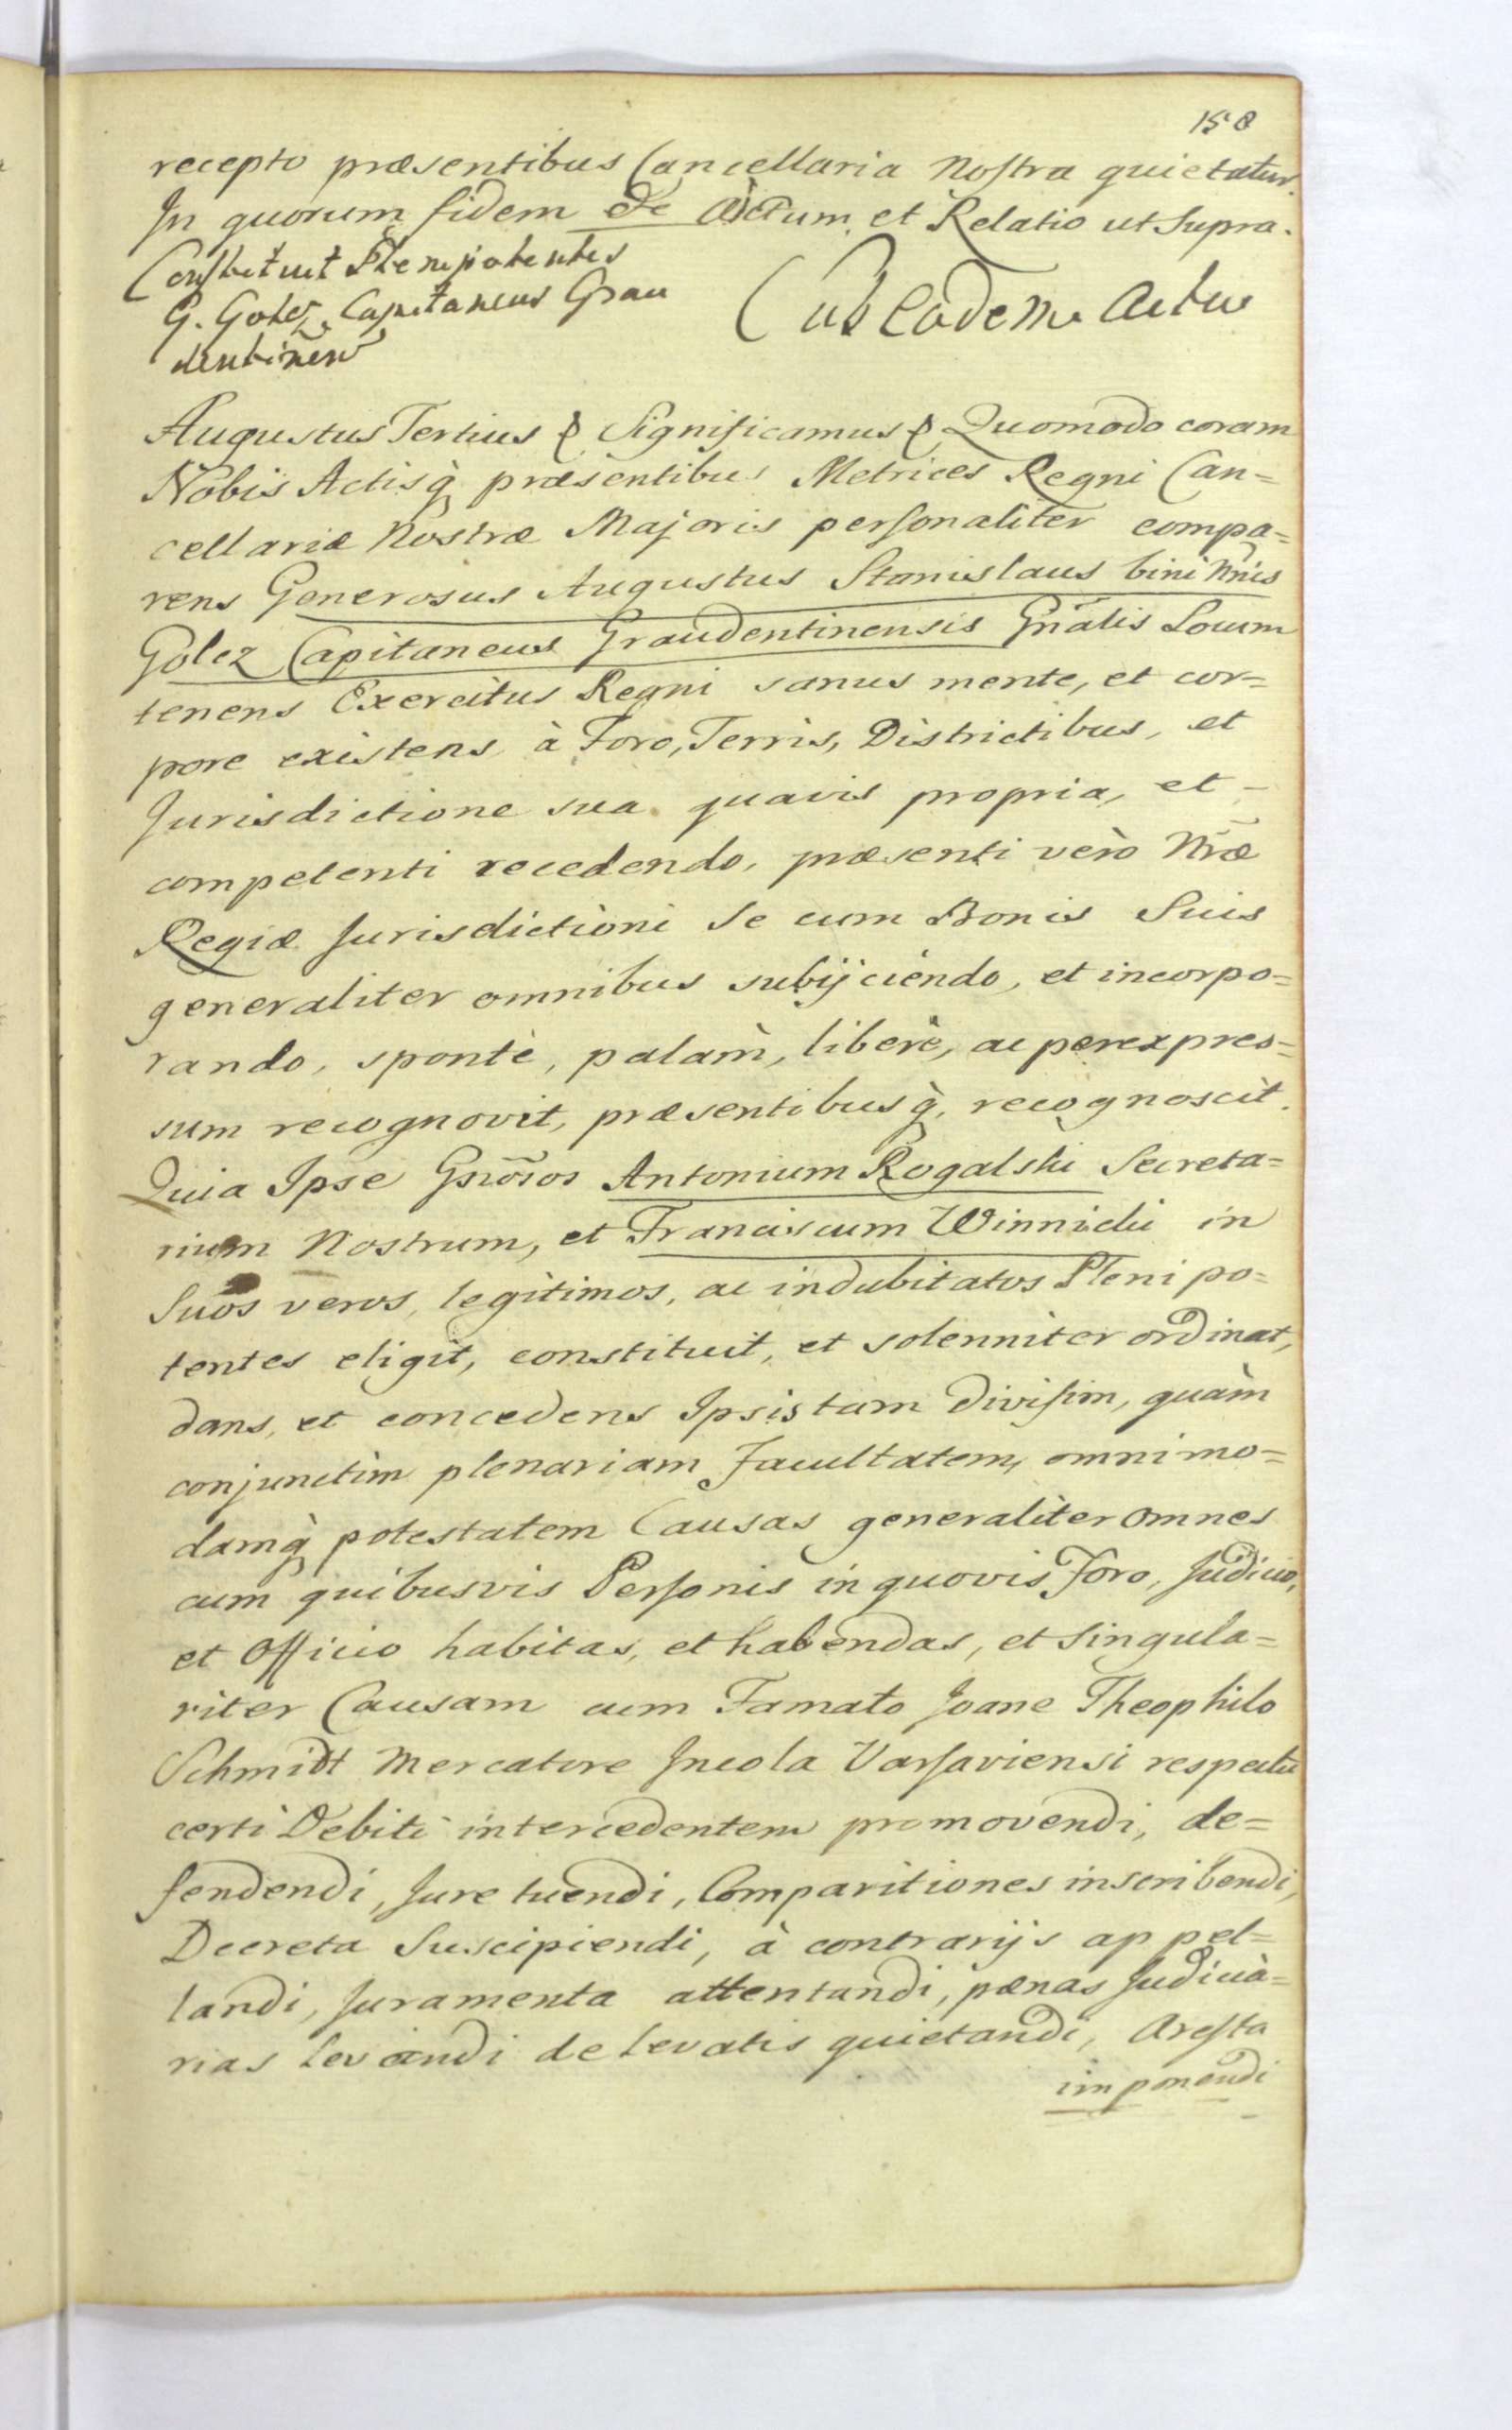 158
recepto præsentibus Cancellaria Nostra quietatur.
In quorum fidem &c Actum et Relatio ut Supra.
Constituit Plenipotentes
G. Golcz Capitaneus Grau
dentinen
Sub Eodem Actu
Augustus Tertius & Significamus & Quomodo coram
Nobis Actisq̀ præsentibus Metrices Regni Can=
cellariæ Nostræ Majoris personaliter compa=
rens Generosus Augustus Stanislaus bini Nn̄is
Golcz Capitaneus Graudentinensis Gn̄alis Locum
tenens Exercitus Regni sanus mente, et cor=
pore existens à Foro, Terris, Districtibus, et
Jurisdictione sua quavis propria, et -
competenti recedendo, præsenti verò Nr̄æ
Regiæ Jurisdictioni Se cum Bonis Suis
generaliter omnibus subijciendo, et incorpo=
rando, spontè, palàm, liberè, ac perexpres=
sum recognovit, præsentibusq̀, recognoscit.
Quia Ipse Gnr̄osos Antonium Rogalski Secreta=
rium Nostrum, et Franciscum Winnicki in
Suos veros, legitimos, ac indubitatos Plenipo=
tentes eligit, constituit, et solenniter ordinat,
dans, et concedens Ipsis tam divisim, quàm
conjunctim plenariam Facultatem, omnimo=
damq̀ potestatem Causas generaliter omnes
cum quibusvis Personis in quovis Foro, Judicio,
et Officio habitas, et habendas, et singula=
riter Causam cum Famato Joane Theophilo
Schmidt Mercatore Incola Varsaviensi respectu
certi Debiti intercedentem promovendi, de=
fendendi, Jure tuendi, Comparitiones inscribendi,
Decreta Suscipiendi, à contrarijs appel=
landi, Juramenta attentandi, pænas Judicia=
rias levandi de levatis quietandi, Aresta
imponendi